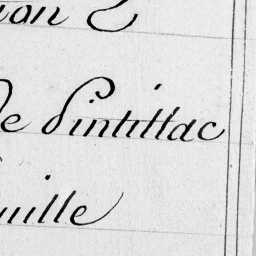 ion 2
de Pintillac
uille